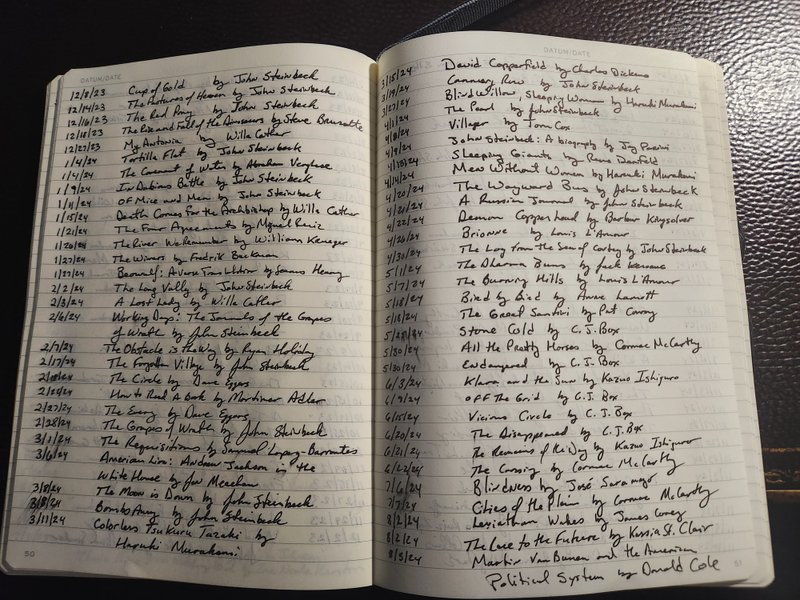 DATUM/DATE
12/8/23 Cup of Gold by John Steinbeck
12/14/23 The Pastures of Heaven by John Steinbeck
12/16/23 The Red Pony by John Steinbeck
12/18/23 The Rise and Fall of the Dinosaurs by Steve Brusatte
12/27/23 My Antonia by Willa Cather
1/4/24 Tortilla Flat by John Steinbeck
1/4/24 The Covenant of Water by Abraham Verghese
1/9/24 In Dubious Battle by John Steinbeck
1/11/24 Of Mice and Men by John Steinbeck
1/15/24 Death Comes For the Archbishop by Willa Cather
1/21/24 The Four Agreements by Miguel Ruiz
1/26/24 The River We Remember by William Krueger
1/27/24 The Winners by Fredrik Backman
1/27/24 Beowulf: A Verse Translation by Seamus Heaney
2/2/24 The Long Valley by John Steinbeck
2/3/24 A Lost Lady by Willa Cather
2/6/24 Working Days: The Journals of the Grapes
of Wrath by John Steinbeck
2/7/24 The Obstacle is the Way by Ryan Holiday
2/17/24 The Forgotten Village by John Steinbeck
The Circle by Dave Eggers
How to Read A Book by Mortimer Adler
2/27/24 The Every by Dave Eggers
2/28/24 The Grapes of Wrath by John Steinbeck
3/1/24 The Requisitions by Samuel Lopez-Barrantes
3/6/24 American Lion: Andrew Jackson in the
White House by Jon Meacham
3/8/24 The Moon is Down by John Steinbeck
3/8/24 Bombs Away by John Steinbeck
3/11/24 Colorless Tsukuru Tazaki by
Haruki Murakami
50
DATUM/DATE
3/15/24 David Copperfield by Charles Dickens
3/19/24 Cannery Row by John Steinbeck
3/27/24 Blind Willow, Sleeping Woman by Haruki Murakami
4/1/24 The Pearl by John Steinbeck
4/8/24 Villager by Tom Cox
4/9/24 John Steinbeck: A biography by Jay Parini
Sleeping Giants by Rene Denfeld
4/14/24 Men Without Women by Haruki Murakami
4/20/24 The Wayward Bus by John Steinbeck
4/21/24 A Russian Journal by John Steinbeck
4/22/24 Demon Copperhead by Barbar Kingsolver
4/26/24 Brionne by Louis L'Amour
4/30/24 The Log from the Sea of Cortez by John Steinbeck
5/1/24 The Dharma Bums by Jack Kerouac
5/7/24 The Burning Hills by Louis L'Amour
5/18/24 Bird by Bird by Anne Lamott
5/18/24 The Great Santini by Pat Conroy
Stone Cold by C.J. Box
5/30/24 All the Pretty Horses by Cormac McCarthy
5/30/24 Endangered by C.J. Box
6/3/24 Klara and the Sun by Kazuo Ishiguro
6/9/24 Off The Grid by C.J. Box
6/15/24 Vicious Circle by C.J. Box
6/20/24 The Disappeared by C.J. Box
6/21/24 The Remains of the Day by Kazuo Ishiguro
6/22/24 The Crossing by Cormac McCarthy
7/6/24 Blindness by José Saramago
7/7/24 Cities of the Plain by Cormac McCarthy
8/2/24 Leviathan Wakes by James Corey
8/2/24 The Lace to the Future by Kassia St. Clair
8/5/24 Martin Van Buren and the American
Political System by Donald Cole
51